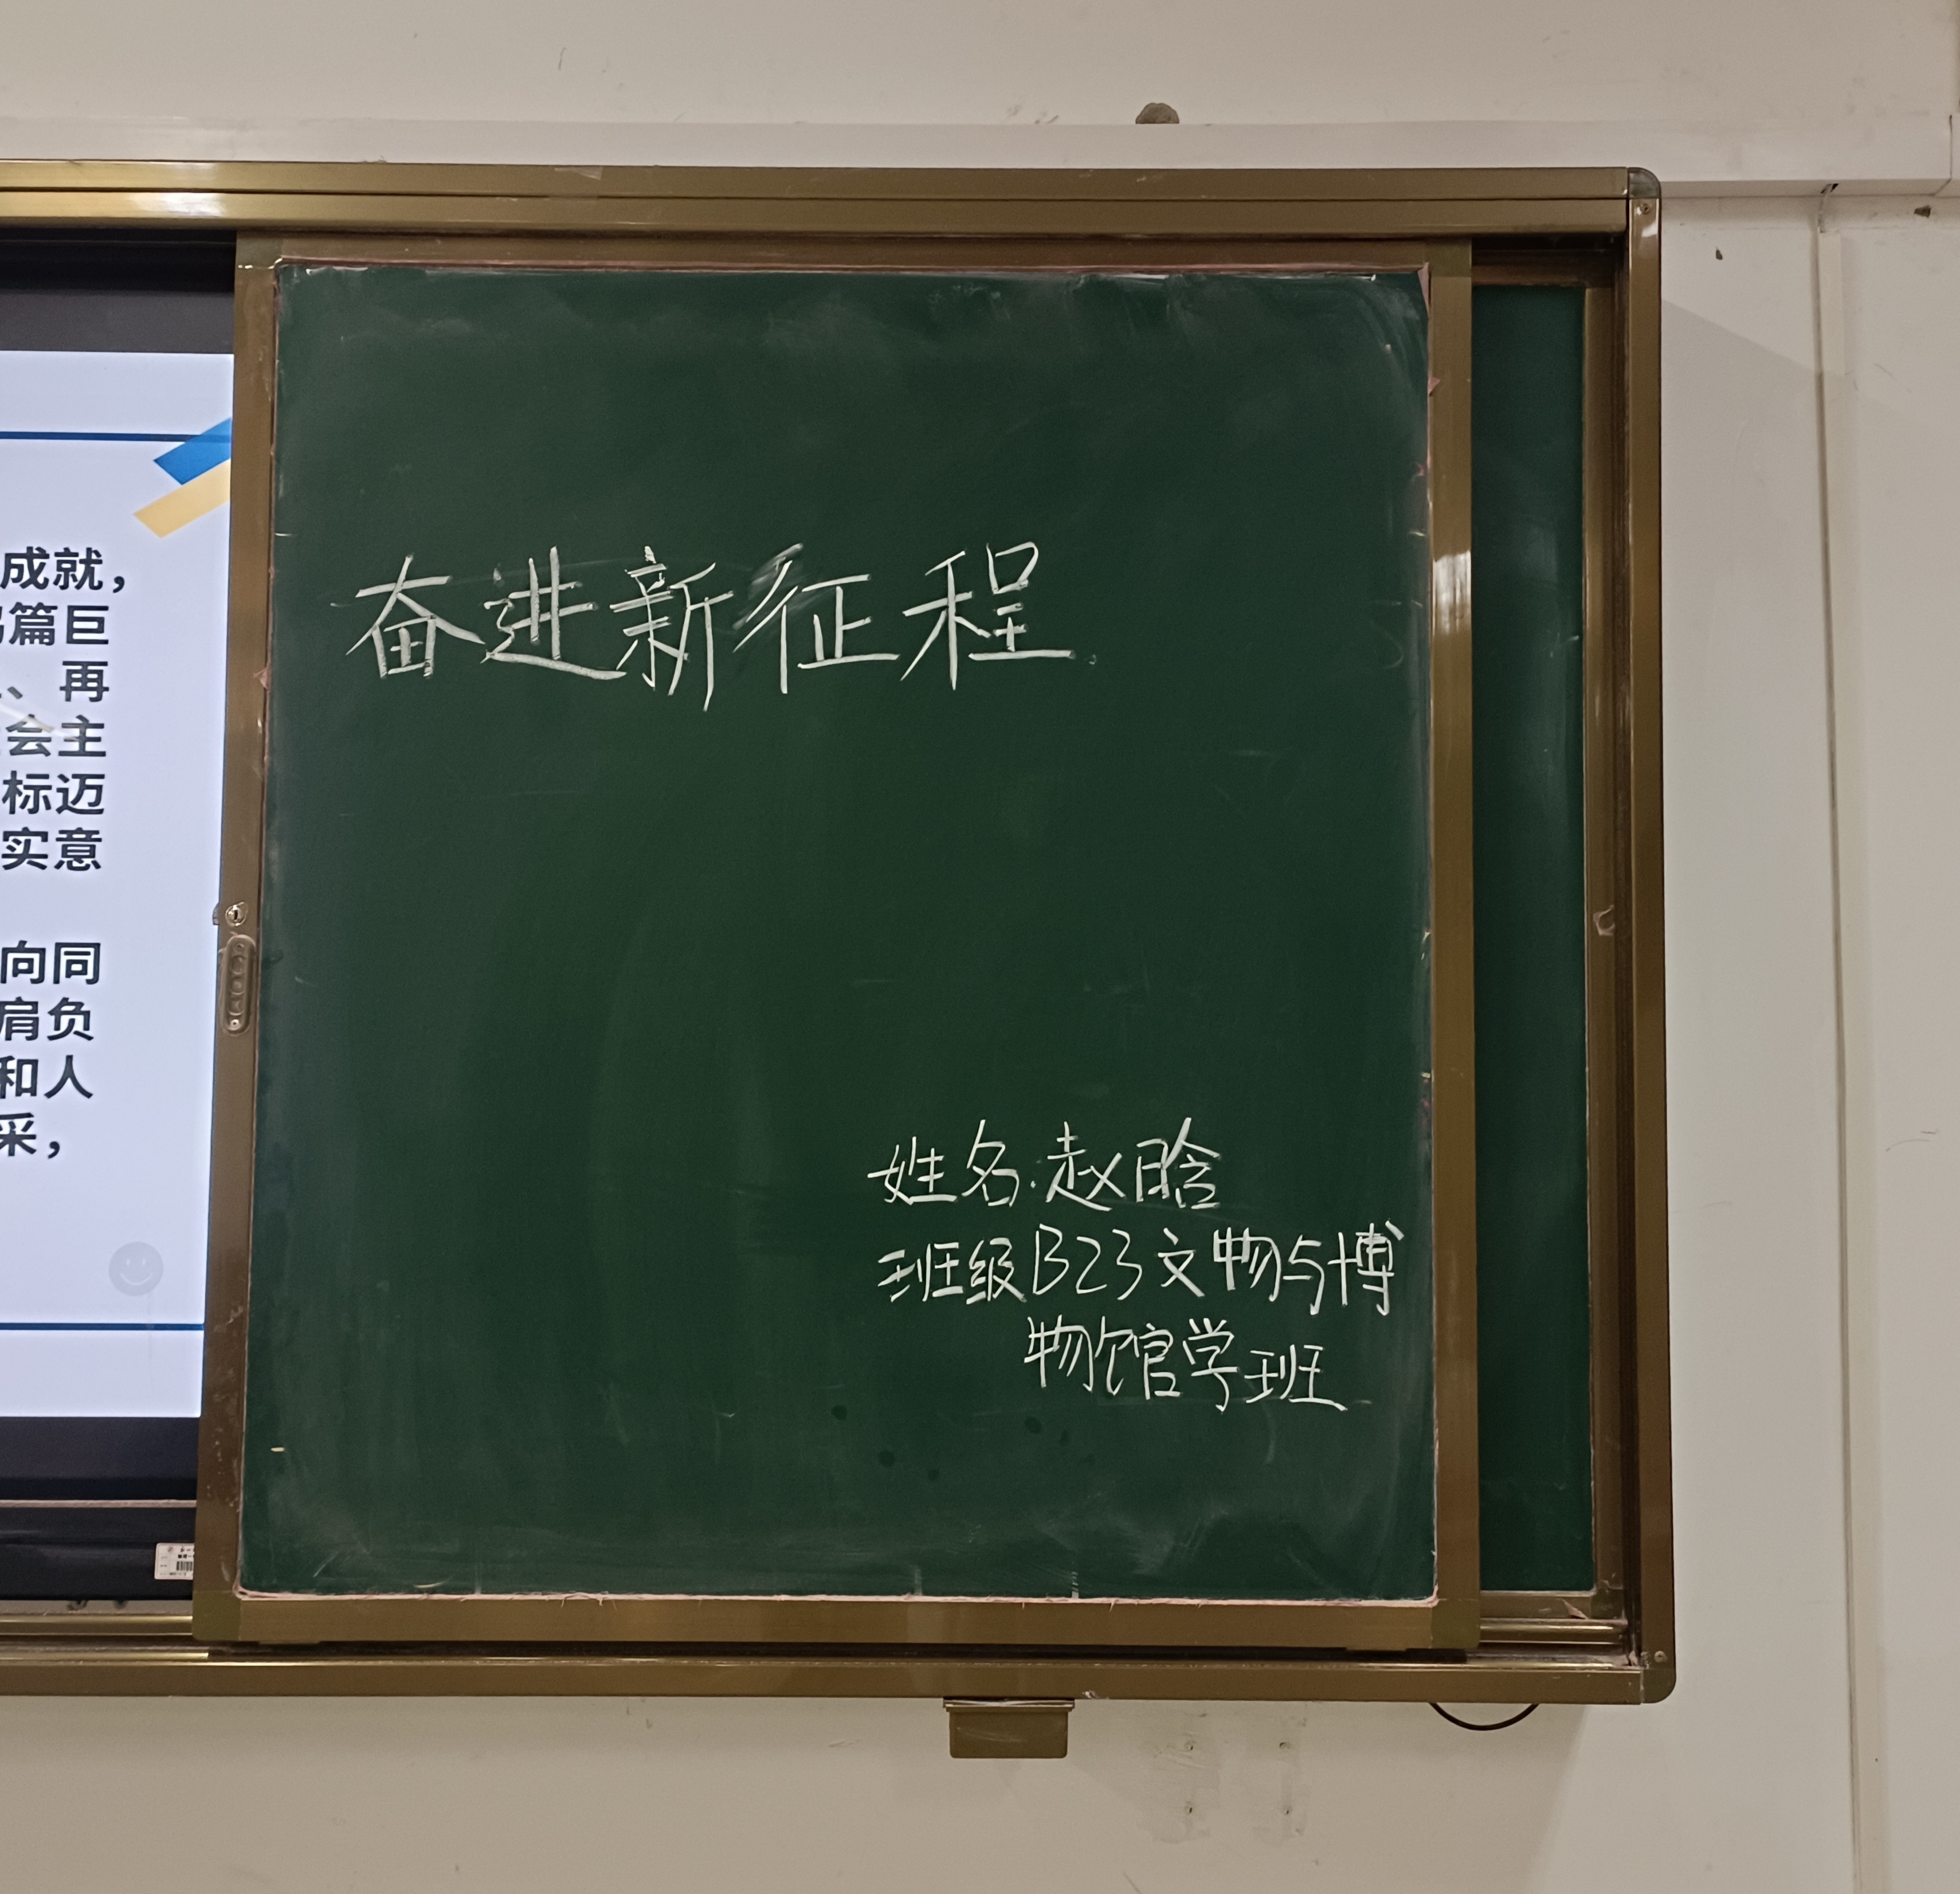 成就，
篇巨
、再
会主
标迈
实意
向同
肩负
和人
采，
奋进新征程.
姓名.赵晗
班级B23文物与博
物馆学班